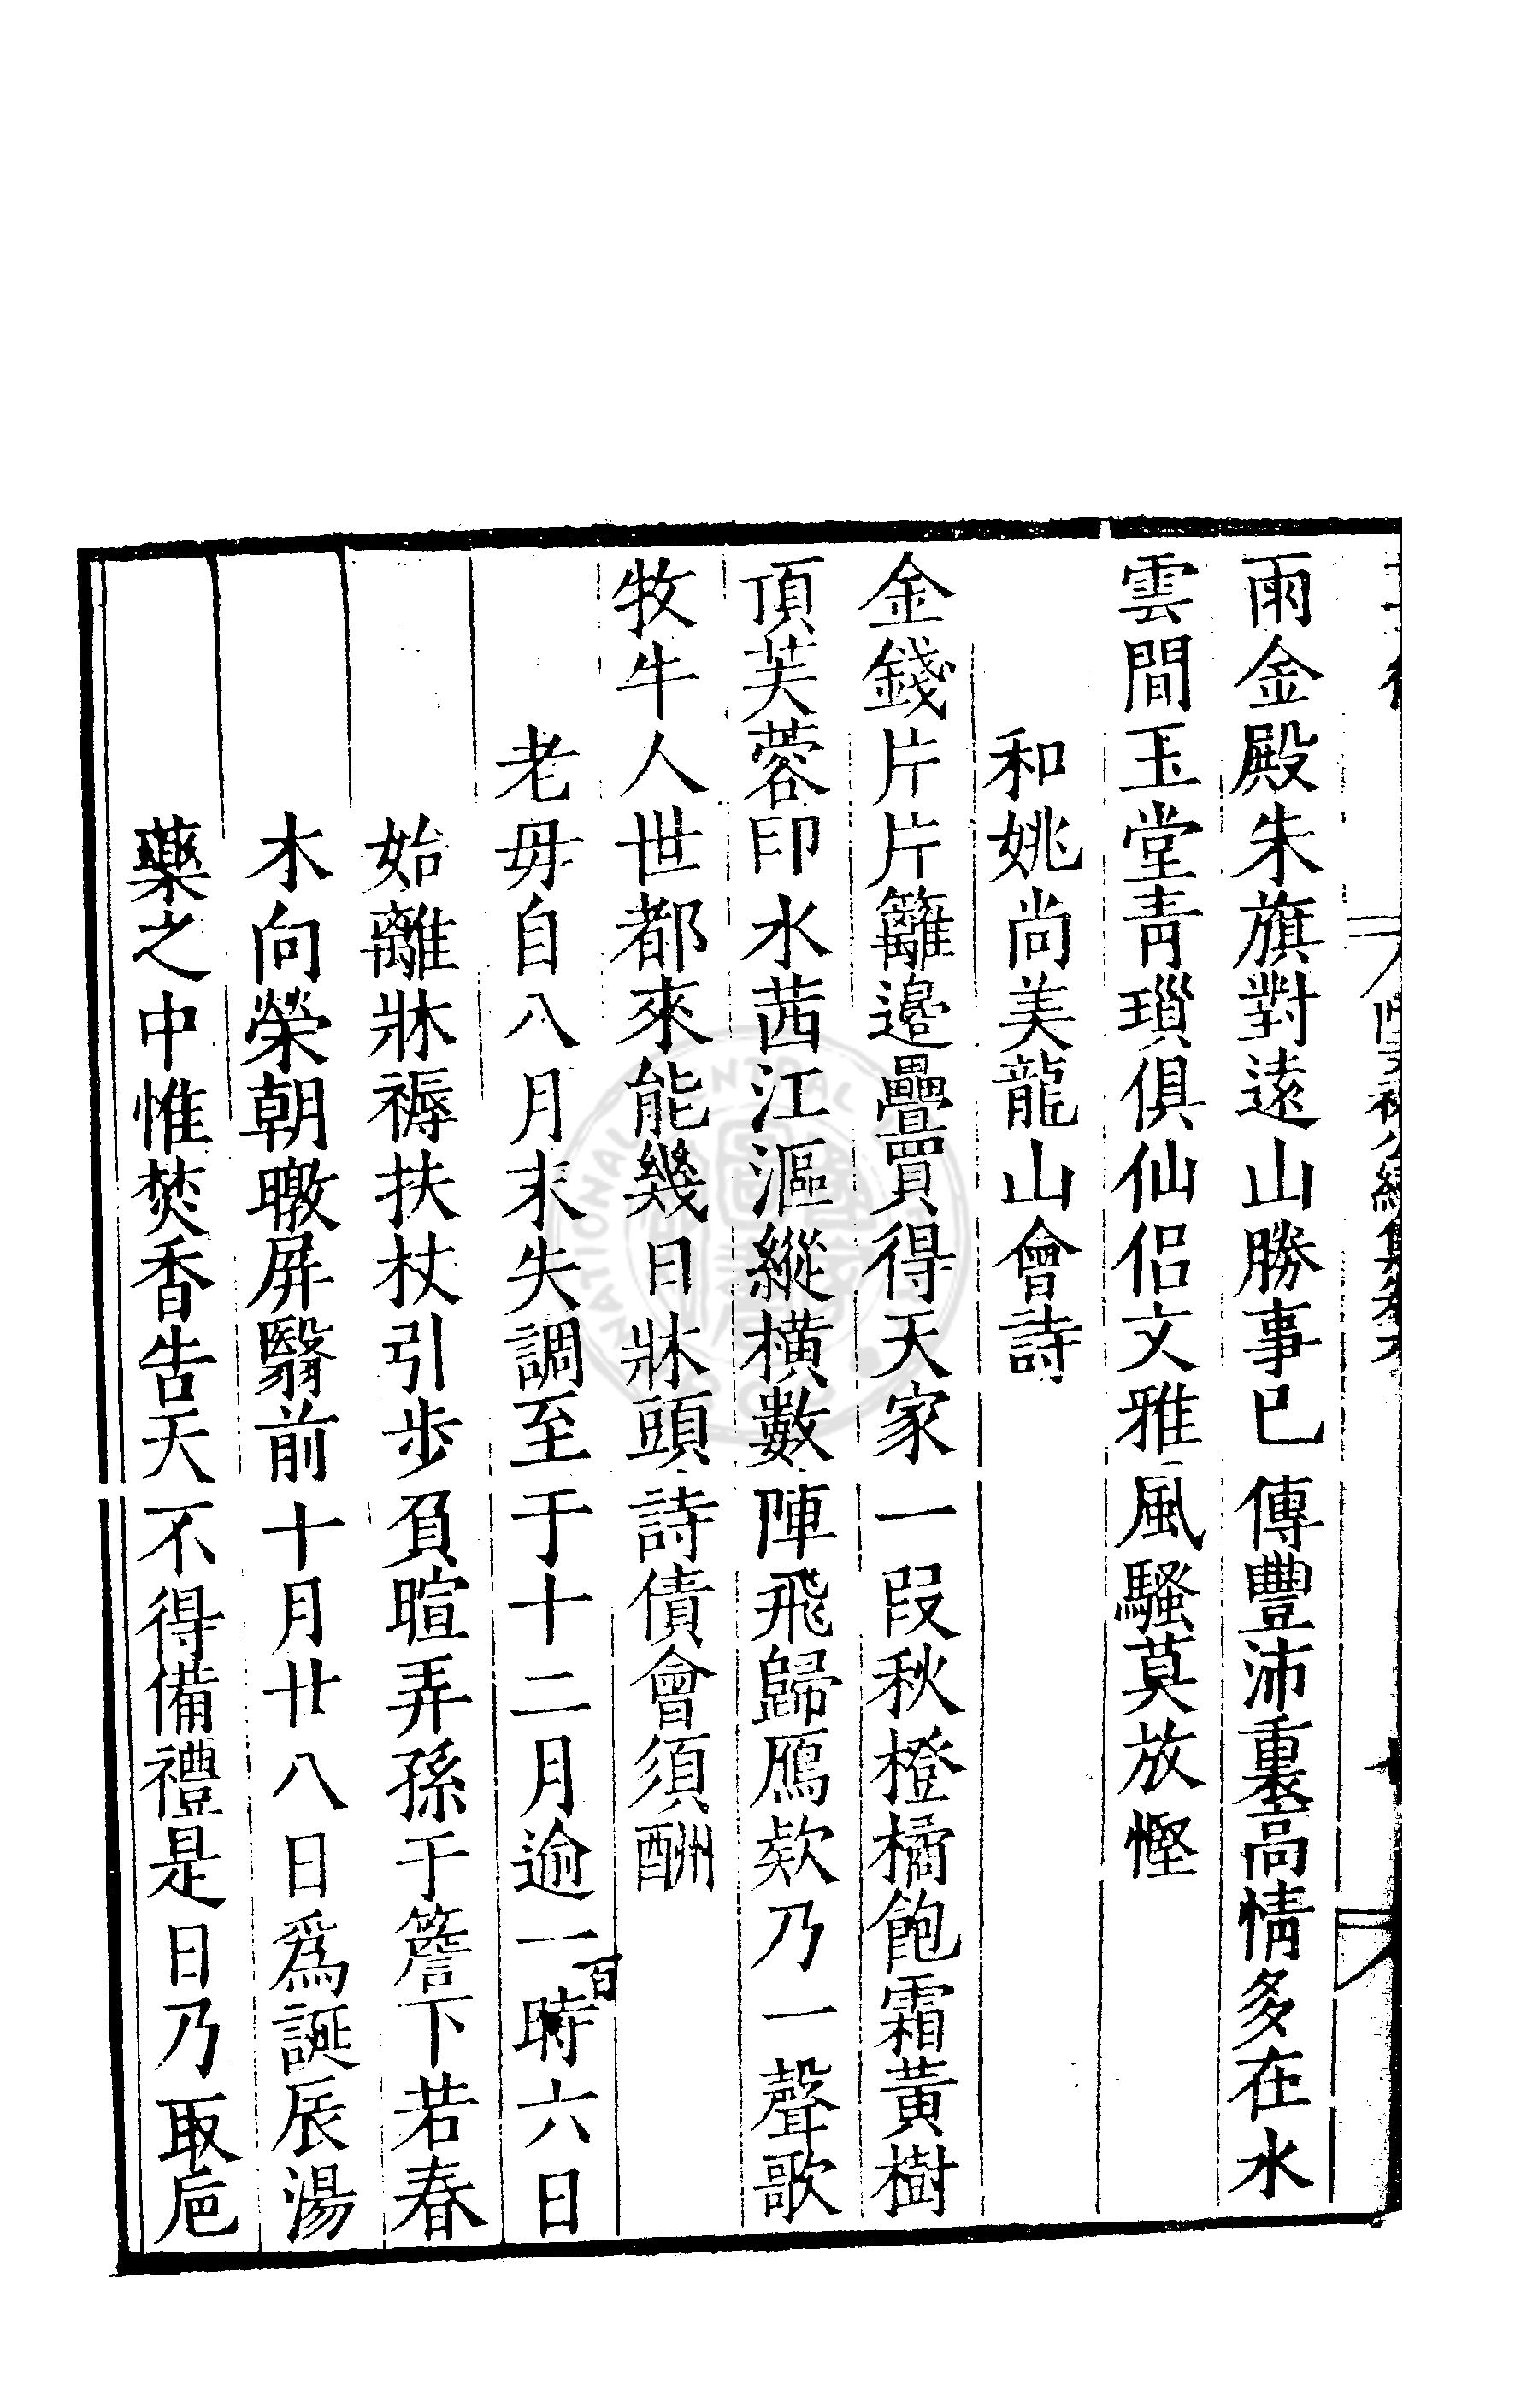 雨金殿朱旗對遠山勝事已傳豐沛裏高情多在水
雲間玉堂青瑣俱仙侣文雅風騷莫放慳
和姚尚美龍山會詩
金錢片片籬邉疊買得天家一段秋橙橘飽霜黃樹
頂芙蓉印水茜江漚縱橫數陣飛歸鴈欵乃一聲歌
牧牛人世都來能幾日牀頭詩債會須酬
老毋自八月末失調至于十二月逾一百時六日
始離牀褥扶杖引步負暄弄孫于簷下若春
木向榮朝暾屏翳前十月廿八日爲誕辰湯
藥之中惟焚香告天不得備禮是日乃取巵
NATIONAL CENTRAL